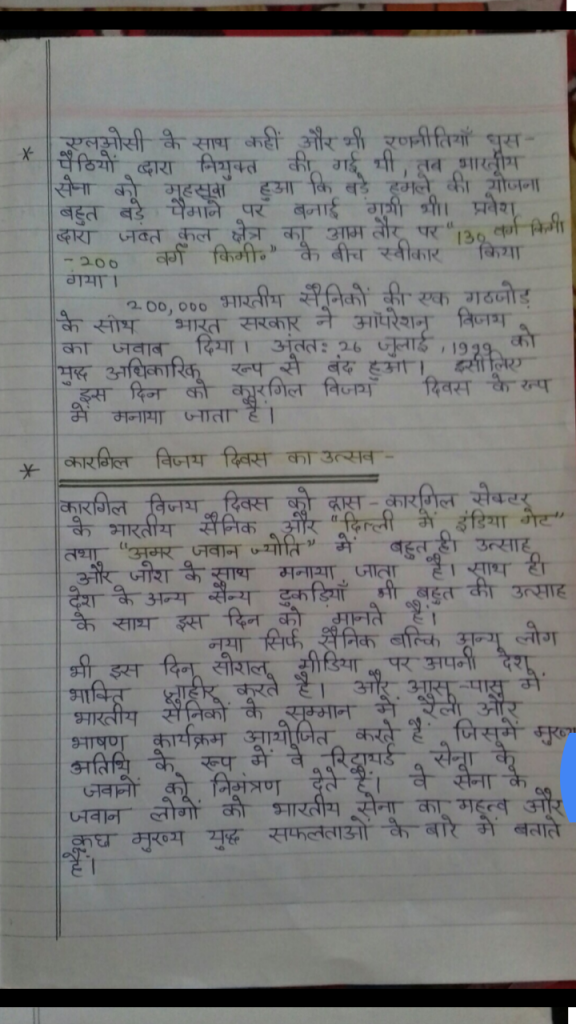 * एलओसी के साथ कहीं और भी रणनीतियाँ घुस-
पैठियों द्वारा नियुक्त की गई थी, तब भारतीय
सेना को महसूस हुआ कि बड़े हमले की योजना
बहुत बड़े पैमाने पर बनाई गयी थी। प्रवेश
द्वारा जब्त कुल क्षेत्र का आम तौर पर "130 वर्ग किमी
-200 वर्ग किमी॰" के बीच स्वीकार किया
गया।
200,000 भारतीय सैनिकों की एक गठजोड़
के साथ भारत सरकार ने ऑपरेशन विजय
का जवाब दिया। अंततः 26 जुलाई, 1999 को
युद्ध अधिकारिक रूप से बंद हुआ। इसीलिए
इस दिन को कारगिल विजय दिवस के रूप
में मनाया जाता है।
* कारगिल विजय दिवस का उत्सव -
कारगिल विजय दिवस को द्रास - कारगिल सेक्टर
के भारतीय सैनिक और "दिल्ली में इंडिया गेट"
तथा "अमर जवान ज्योति" में बहुत ही उत्साह
और जोश के साथ मनाया जाता है। साथ ही
देश के अन्य सैन्य टुकड़ियाँ भी बहुत की उत्साह
के साथ इस दिन को मानते हैं।
नया सिर्फ सैनिक बल्कि अन्य लोग
भी इस दिन सोशल मीडिया पर अपनी देश
भाक्ति ज़ाहीर करते हैं। और आस-पास में
भारतीय सैनिकों के सम्मान में रैली और
भाषण कार्यक्रम आयोजित करते हैं जिसमें मुख्य
अतिथि के रूप में वे रिटायर्ड सेना के
जवानों को निमंत्रण देते हैं। वे सेना के
जवान लोगों को भारतीय सेना का महत्व और
कुछ मुख्य युद्ध सफलताओं के बारे में बताते
हैं।